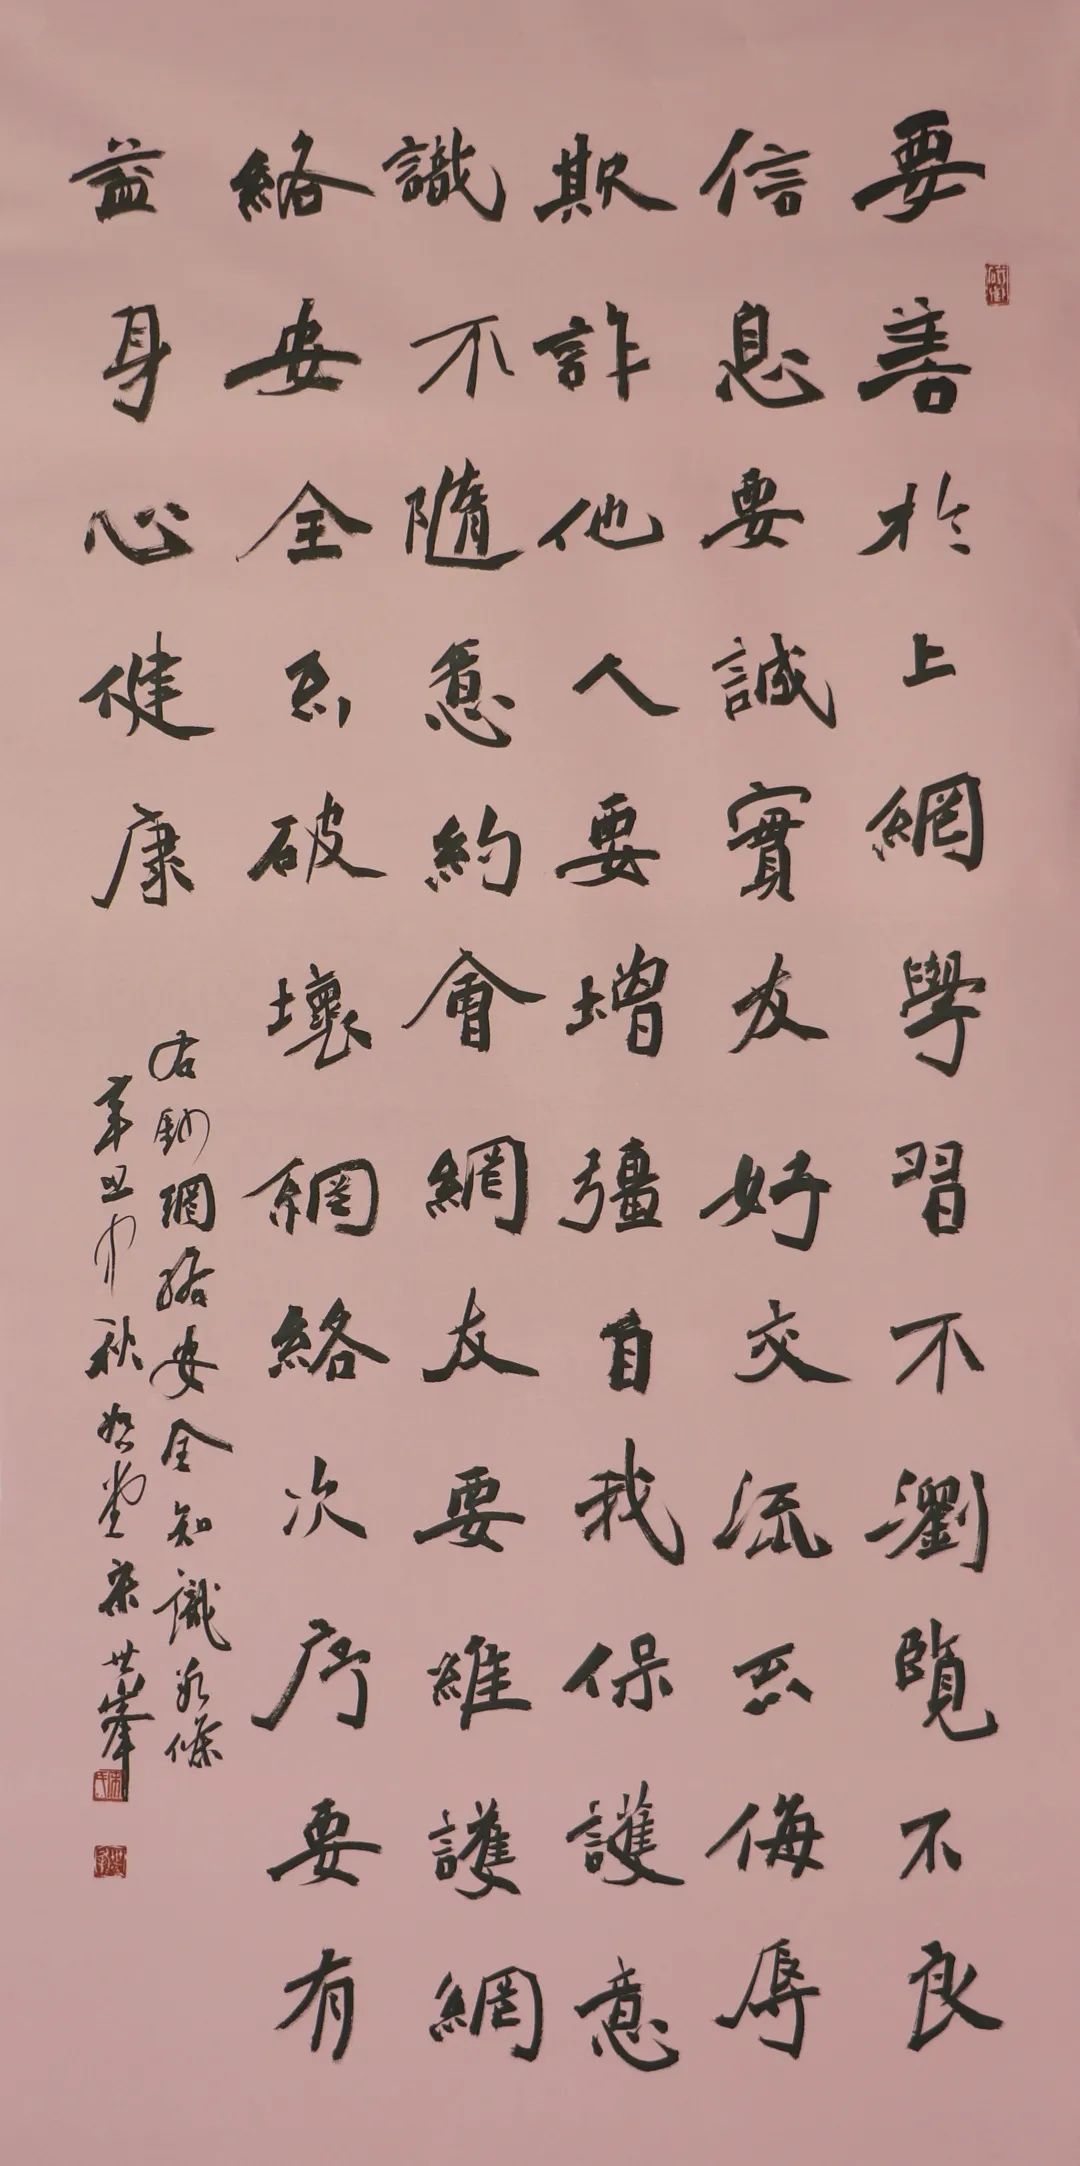 要善於上網學習不瀏覽不良
信息要誠實友好交流不侮辱
欺詐他人要增彊自我保護意
識不隨意約會網友要維護網
絡安全不破壞網絡次序要有
益身心健康
右鈔網絡安全知識條
辛丑中秋堂宋世峯